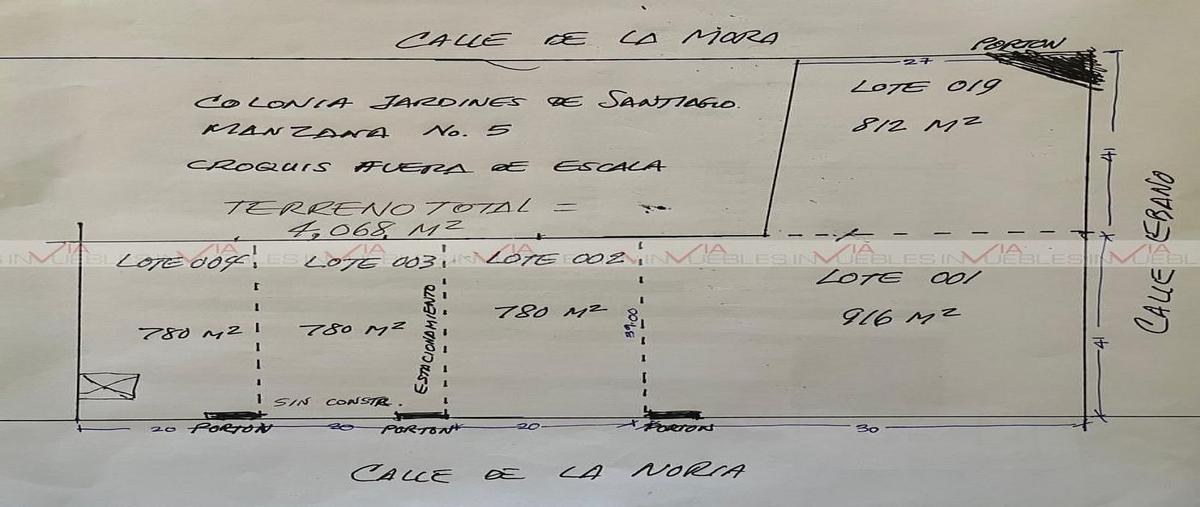 CALLE DE LA MORA
PORTON
27
LOTE 019
812 M²
COLONIA JARDINES DE SANTIAGO.
MANZANA No. 5
CROQUIS FUERA DE ESCALA
TERRENO TOTAL =
4,068 M²
41
CALLE EBANO
VIA INMUEBLES
LOTE 004
LOTE 003
LOTE 002
LOTE 001
780 M²
780 M²
780 M²
916 M²
ESTACIONAMIENTO
39.00
41
SIN CONSTR.
20
PORTON
20
PORTON
20
PORTON
30
CALLE DE LA NORIA